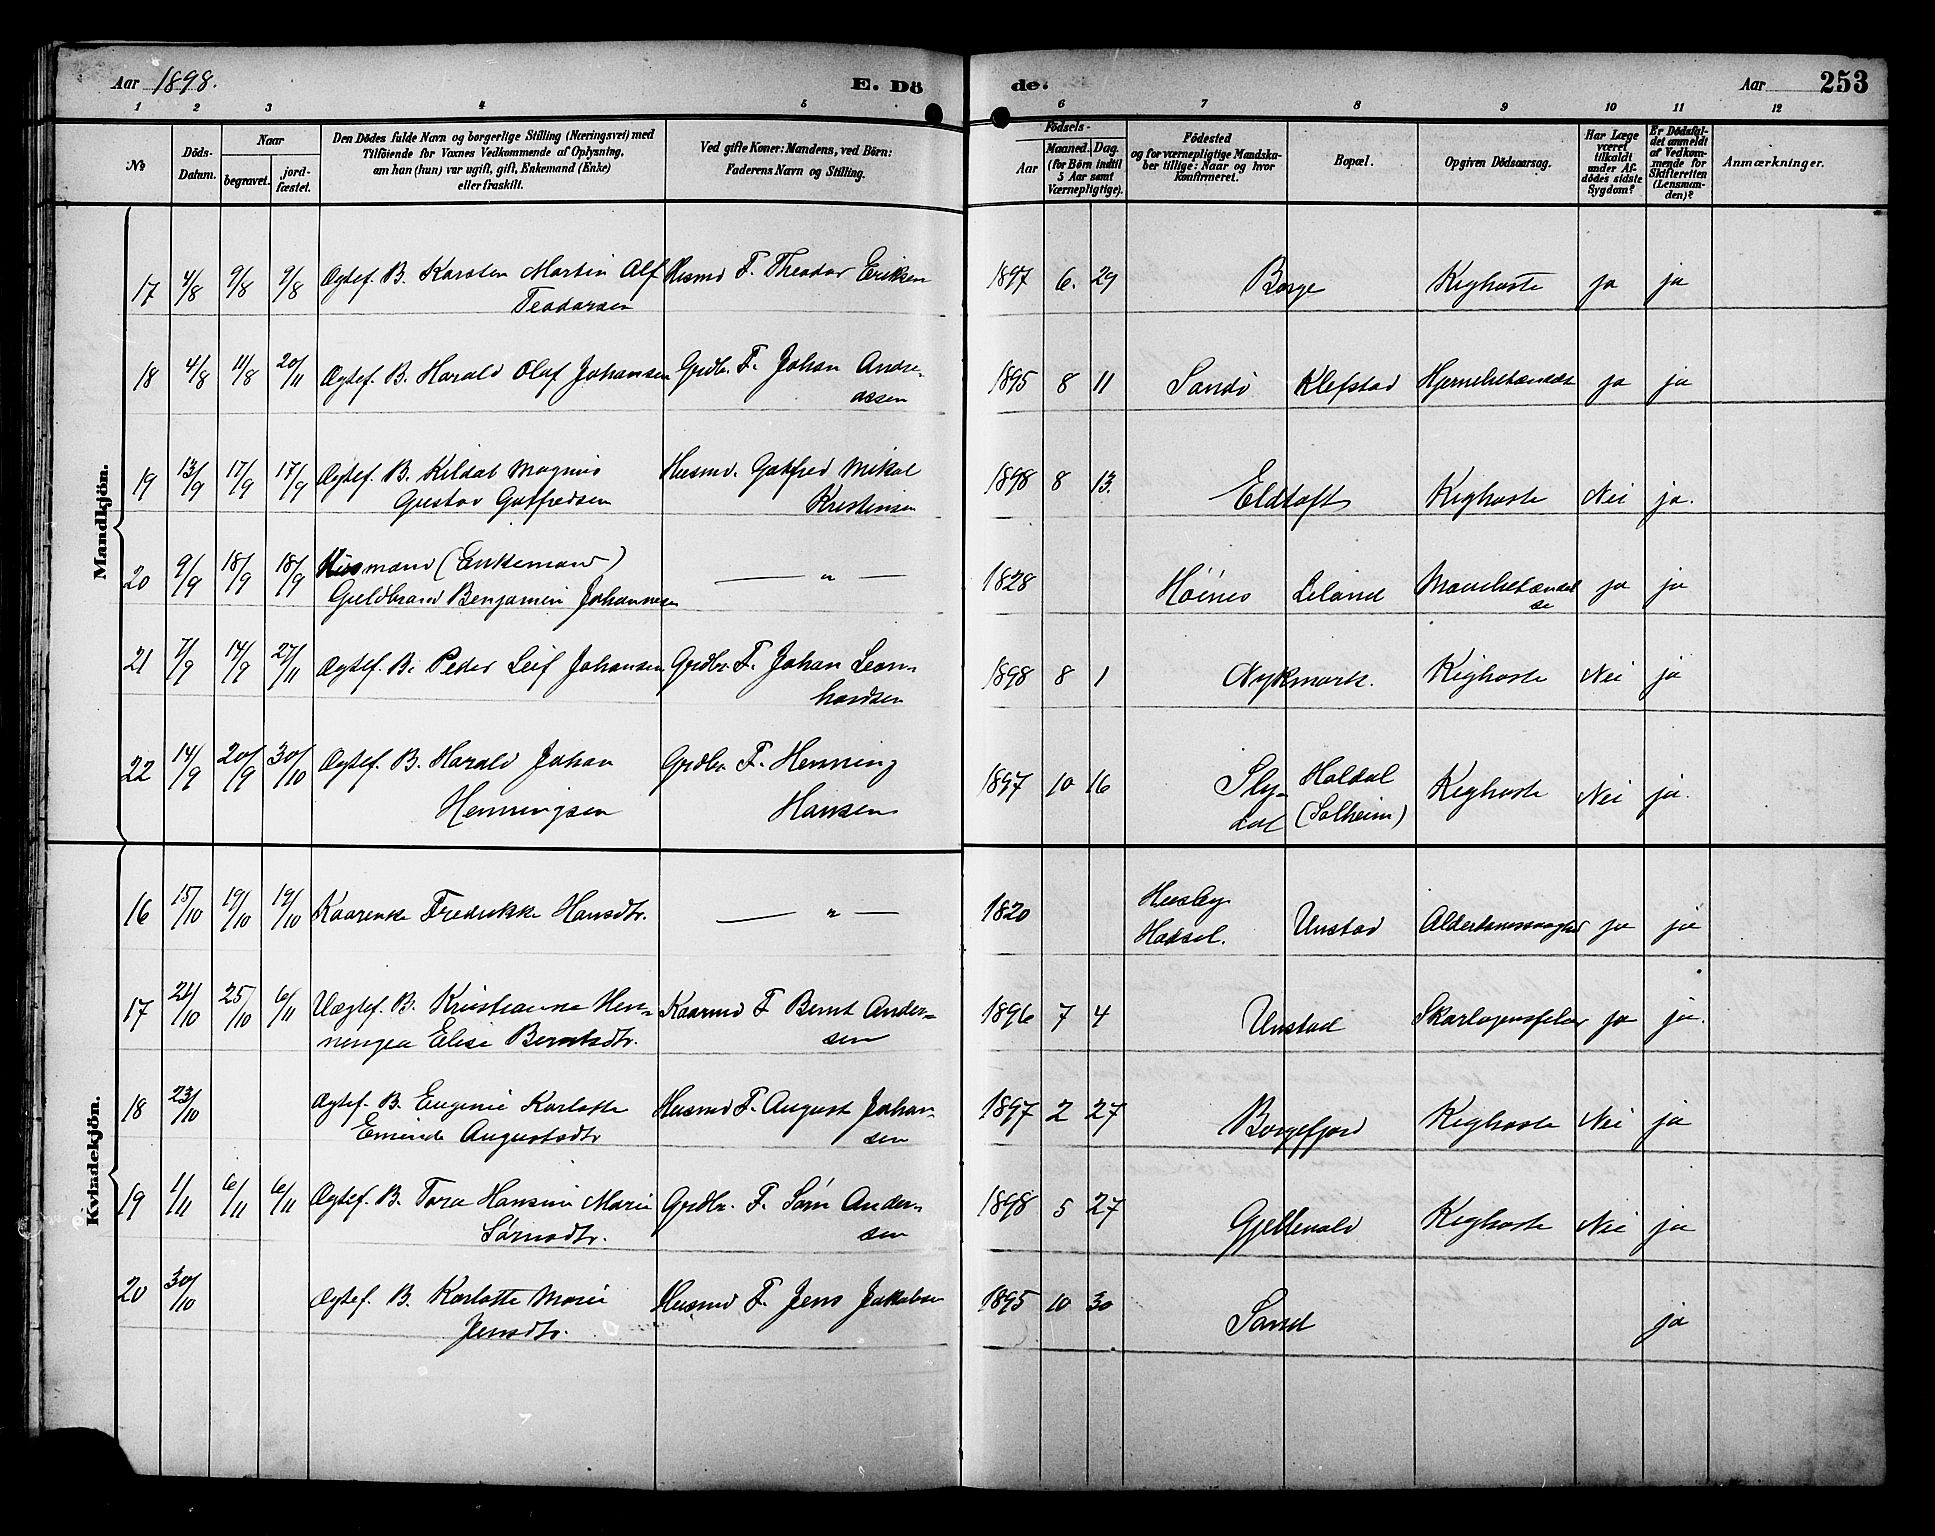 Aar 1898.
E. Dö
de.
Aar
253
1 2 3 4 5
6 7 8 9 10 11 12
No
Döds-Datum.
Naar
begravet.
jord-fæstet.
Den Dödes fulde Navn og borgerlige Stilling (Næringsvei) med
Tilföiende for Voxnes Vedkommende af Oplysning,
om han (hun) var ugift, gift, Enkemand (Enke)
eller fraskilt.
Ved gifte Koner: Mandens, ved Börn:
Faderens Navn og Stilling.
Födsels-
Aar
Maaned. Dag.
(for Börn indtil
5 Aar samt
Værnepligtige).
Födested
og for værnepligtige Mandska-
ber tillige: Naar og hvor
konfirmeret.
Bopæl.
Opgiven Dödsaarsag.
Har Læge
været
tilkaldt
under Af-
dödes sidste
Sygdom?
Er Dödsfal-
det anmeldt
af Vedkom-
mende for
Skifteretten
(Lensman-
den)?
Anmærkninger.
Mandkjön.
17 4/8 9/8 9/8 Ægtef. B. Karsten Martin Alf Husmd F. Theodor Eriksen 1897 6. 29 Borge Kighoste ja ja
Teodorsen
18 4/8 11/8 20/11 Ægtef. B. Harald Olaf Johansen Grdbr. F. Johan Andre- 1895 8 11 Sandö Klefstad Hjernebetændelse ja ja
assen
19 13/9 17/9 17/9 Ægtef. B. Kildal Magnus Husmd. Gotfred Mikal 1898 8 13. Eldtoft Kighoste Nei ja.
Gustav Gotfredsen Kristensen
20 9/9 18/9 18/9 Husmand (Enkemand) — " — 1828 Höines Leland Mavebetændel
Guldbrand Benjamin Johannesen se ja ja
21 7/9 14/9 27/11 Ægtef. B. Peder Leif Johansen Grdbr. F. Johan Leon- 1898 8 1 Nykmark. Kighoste Nei ja
hardsen
22 14/9 20/9 30/10 Ægtef. B. Harald Johan Grdbr F. Henning 1897 10 16 Sly- Holdal Kighoste Nei ja.
Henningsen Hansen dal (Solheim)
Kvindekjön.
16 15/10 19/10 19/10 Kaarenke Fredrikke Hansdtr. — " — 1820 Husby Unstad Alderdomssvaghed ja ja
Hadsel.
17 21/10 25/10 6/11 Uægtef. B. Kristianna Hen- Kaarmd F Bernt Ander- 1896 7 4 Unstad Skarlagensfeber ja ja.
ningea Elise Berntsdtr. sen
18 23/10 Ægtef. B. Eugenie Karlotte Husmd F. August Johan- 1897 2 27 Borgefjord Kighoste Nei ja
Eminde Augustsdtr sen
19 1/11 6/11 6/11 Ægtef. B. Tora Hansine Marie Grdbr. F. Sörn Ander- 1898 5 27 Gjellevold Kighoste Nei ja
Sörnsdtr. sen
20 30/10 Ægtef. B. Karlotte Marie Husmd F. Jens Jakobsen 1895 10 30 Sand ja
Jensdtr.